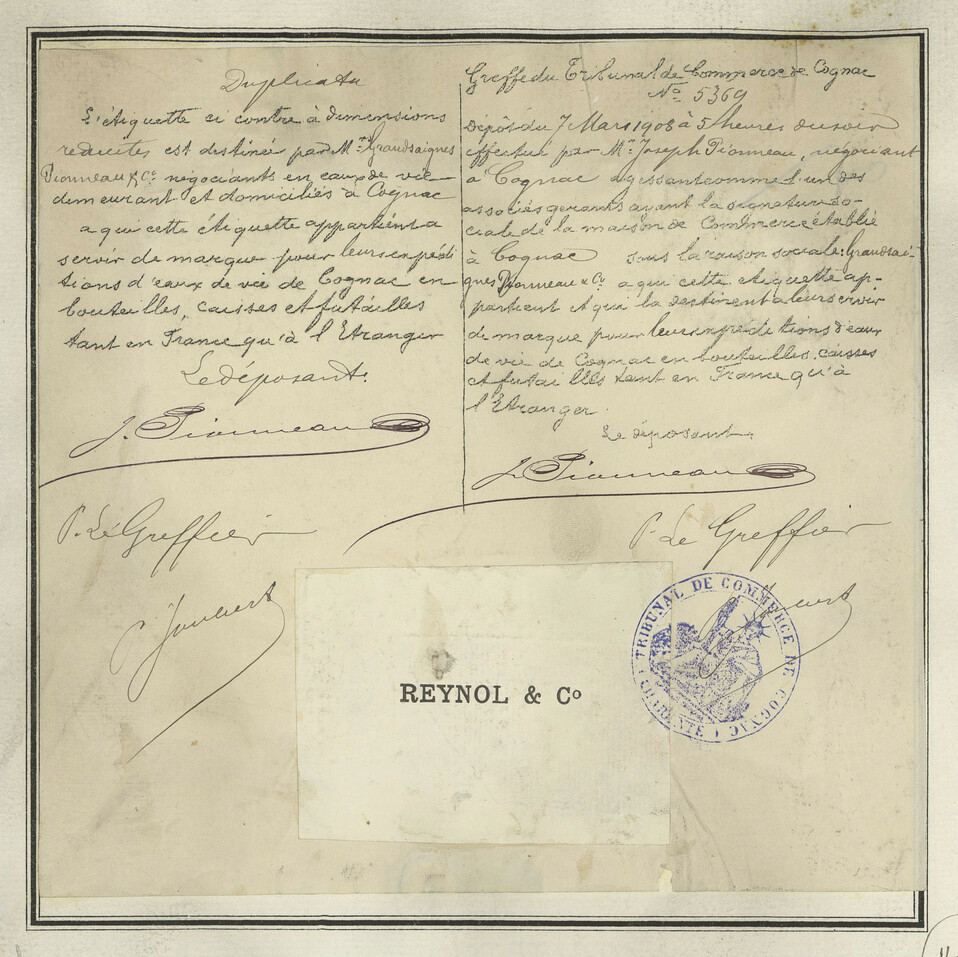 Duplicata
L'étiquette ci contre à dimensions
reduites est destinée par Mrs Grandsaignes
Pionneau & Co négociants en eaux de vie
demeurant et domiciliés à Cognac
a qui cette étiquette appartient a
servir de marque pour leurs expédi
tions d'eaux de vie de Cognac en
bouteilles, caisses et futailles
tant en France qu'à l'Etranger
Le déposant.
J. Pionneau
P. Le Greffier
P Joubert
Greffe du Tribunal de Commerce de Cognac
No 5369
Dépôt du 7 Mars 1908 à 5 heures du soir
effectué par Mr Joseph Pionneau, négociant
à Cognac agissant comme l'un des
associés gerants ayant la signature so-
ciale de la maison de Commerce établie
à Cognac sous la raison sociale: Grandsai-
gnes Pionneau & Co a qui cette étiquette ap-
partient et qui la destinent a leur servir
de marque pour leurs expeditions d'eaux
de vie de Cognac en bouteilles, caisses
et futailles tant en France qu'à
l'Etranger.
Le déposant.
J. Pionneau
P. Le Greffier
TRIBUNAL DE COMMERCE DE COGNAC (CHARENTE)
REYNOL & Co